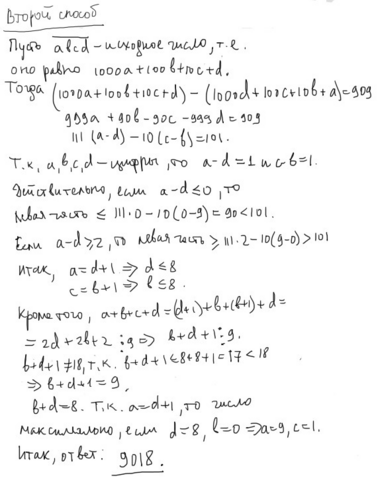 Второй способ
Пусть abcd – исходное число, т.е.
оно равно 1000a+100b+10c+d.
Тогда (1000a+100b+10c+d) – (1000d+100c+10b+a)=909
999a+90b-90c-999d=909
111(a-d)-10(c-b)=101.
Т.к. a,b,c,d-цифры, то a-d=1 и c-b=1.
Действительно, если a-d≤0, то
левая часть ≤ 111·0-10(0-9)=90<101.
Если a-d≥2, то левая часть ≥ 111·2-10(9-0)>101
Итак, a=d+1 ⇒ d≤8
c=b+1 ⇒ b≤8.
Кроме того, a+b+c+d=(d+1)+b+(b+1)+d=
=2d+2b+2 ⋮ 9 ⇒ b+d+1 ⋮ 9.
b+d+1≠18, т.к. b+d+1≤8+8+1=17<18
⇒ b+d+1=9,
b+d=8. Т.к. a=d+1, то число
максимально, если d=8, b=0 ⇒ a=9, c=1.
Итак, ответ: 9018.